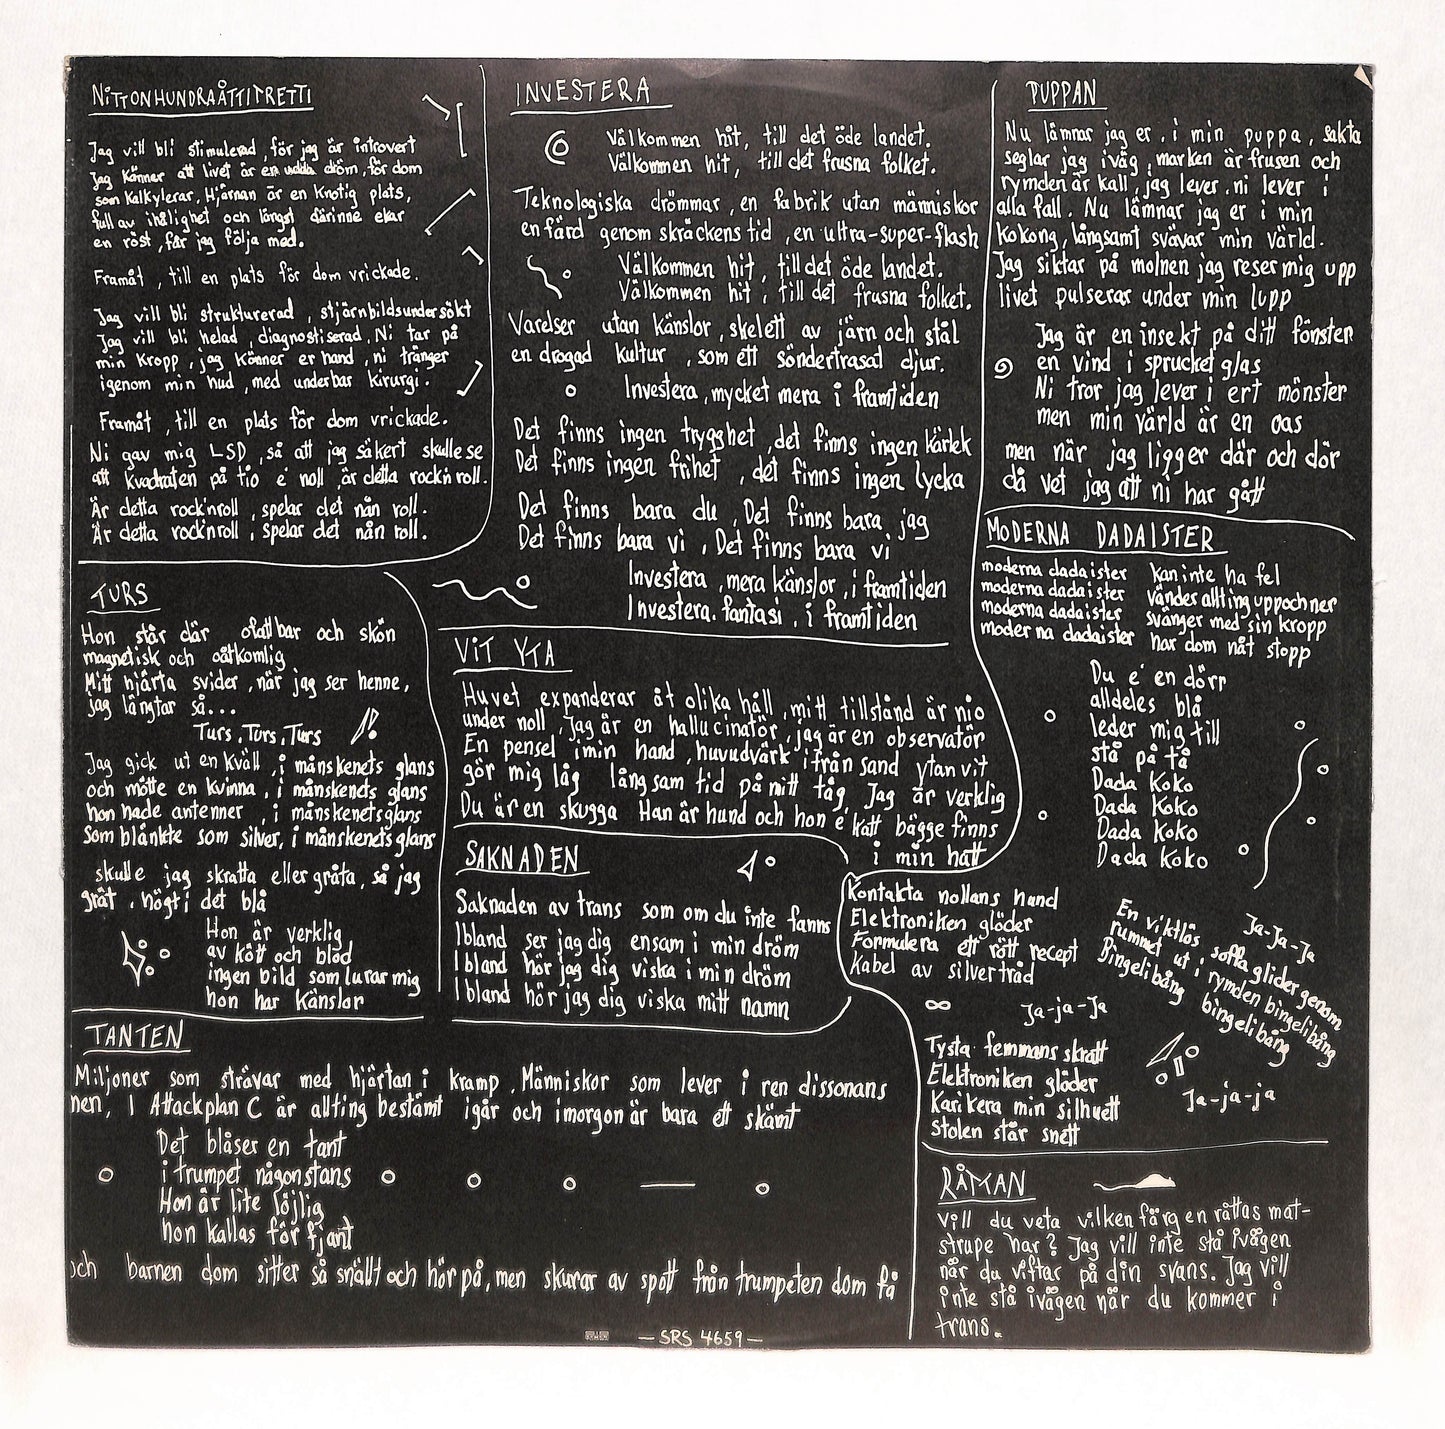 NITTONHUNDRAÅTTITRETTI
Jag vill bli stimulerad, för jag är introvert
Jag känner att livet är en udda dröm, för dom
som kalkylerar, Hjärnan är en knotig plats,
full av ihålighet och längst därinne ekar
en röst, får jag följa med.
Framåt, till en plats för dom vrickade.
Jag vill bli strukturerad, stjärnbildsundersökt
Jag vill bli helad, diagnostiserad, Ni tar på
min kropp, jag känner er hand, ni tränger
igenom min hud, med underbar kirurgi.
Framåt, till en plats för dom vrickade.
Ni gav mig LSD, så att jag säkert skulle se
att kvadraten på tio é noll, är detta rock'n roll.
Är detta rock'nroll, spelar det nån roll.
Är detta rock'nroll, spelar det nån roll.
TURS
Hon står där ofattbar och skön
magnetisk och oåtkomlig
Mitt hjärta svider, när jag ser henne,
jag längtar så...
Turs, Turs, Turs
Jag gick ut en kväll, i månskenets glans
och mötte en kvinna, i månskenets glans
hon hade antenner, i månskenets glans
Som blänkte som silver, i månskenets glans
skulle jag skratta eller gråta, så jag
grät, högt i det blå
Hon är verklig
av kött och blod
ingen bild som lurar mig
hon har känslor
TANTEN
Miljoner som strävar med hjärtan i kramp, Människor som lever i ren dissonans
men, I Attackplan C är allting bestämt igår och imorgon är bara ett skämt
Det blåser en tant
i trumpet någonstans
Hon är lite löjlig
hon kallas för fjant
och barnen dom sitter så snällt och hör på, men skurar av spott från trumpeten dom få
INVESTERA
Välkommen hit, till det öde landet.
Välkommen hit, till det frusna folket.
Teknologiska drömmar, en fabrik utan människor
en färd genom skräckens tid, en ultra-super-flash
Välkommen hit, till det öde landet.
Välkommen hit, till det frusna folket.
Varelser utan känslor, skelett av järn och stål
en drogad kultur, som ett söndertrasat djur.
Investera, mycket mera i framtiden
Det finns ingen trygghet, det finns ingen kärlek
Det finns ingen frihet, det finns ingen lycka
Det finns bara du, Det finns bara jag
Det finns bara vi, Det finns bara vi
Investera, mera känslor, i framtiden
Investera. fantasi, i framtiden
VIT YTA
Huvet expanderar åt olika håll, mitt tillstånd är nio
under noll, Jag är en hallucinatör, jag är en observatör
En pensel i min hand, huvudvärk ifrån sand ytan vit
gör mig låg långsam tid på mitt tåg, Jag är verklig
Du är en skugga Han är hund och hon é katt bägge finns
i min hatt
SAKNADEN
Saknaden av trans som om du inte fanns
Ibland ser jag dig ensam i min dröm
Ibland hör jag dig viska i min dröm
Ibland hör jag dig viska mitt namn
PUPPAN
Nu lämnar jag er, i min puppa, sakta
seglar jag iväg, marken är frusen och
rymden är kall, jag lever, ni lever i
alla fall. Nu lämnar jag er i min
kokong, långsamt svävar min värld.
Jag siktar på molnen jag reser mig upp
livet pulserar under min lupp
Jag är en insekt på ditt fönster
en vind i sprucket glas
Ni tror jag lever i ert mönster
men min värld är en oas
men när jag ligger där och dör
då vet jag att ni har gått
MODERNA DADAISTER
moderna dadaister kan inte ha fel
moderna dadaister vändes allting uppochner
moderna dadaister svänger med sin kropp
moderna dadaister har dom nåt stopp
Du é en dörr
alldeles blå
leder mig till
stå på tå
Dada Koko
Dada Koko
Dada Koko
Dada Koko
Kontakta nollans hund
Elektroniken glöder
Formulera ett rött recept
Kabel av silvertråd
Ja-ja-Ja
Tysta femmans skratt
Elektroniken glöder
Karikera min silhuett
Stolen står snett
Ja-Ja-Ja
En viktlös soffa glider genom
rummet ut i rymden bingelibång
Bingelibång bingelibång
Ja-ja-ja
RÅTTAN
Vill du veta vilken färg en råttas mat-
strupe har? Jag vill inte stå ivägen
när du viftar på din svans. Jag vill
inte stå ivägen när du kommer i
trans.
— SRS 4659 —